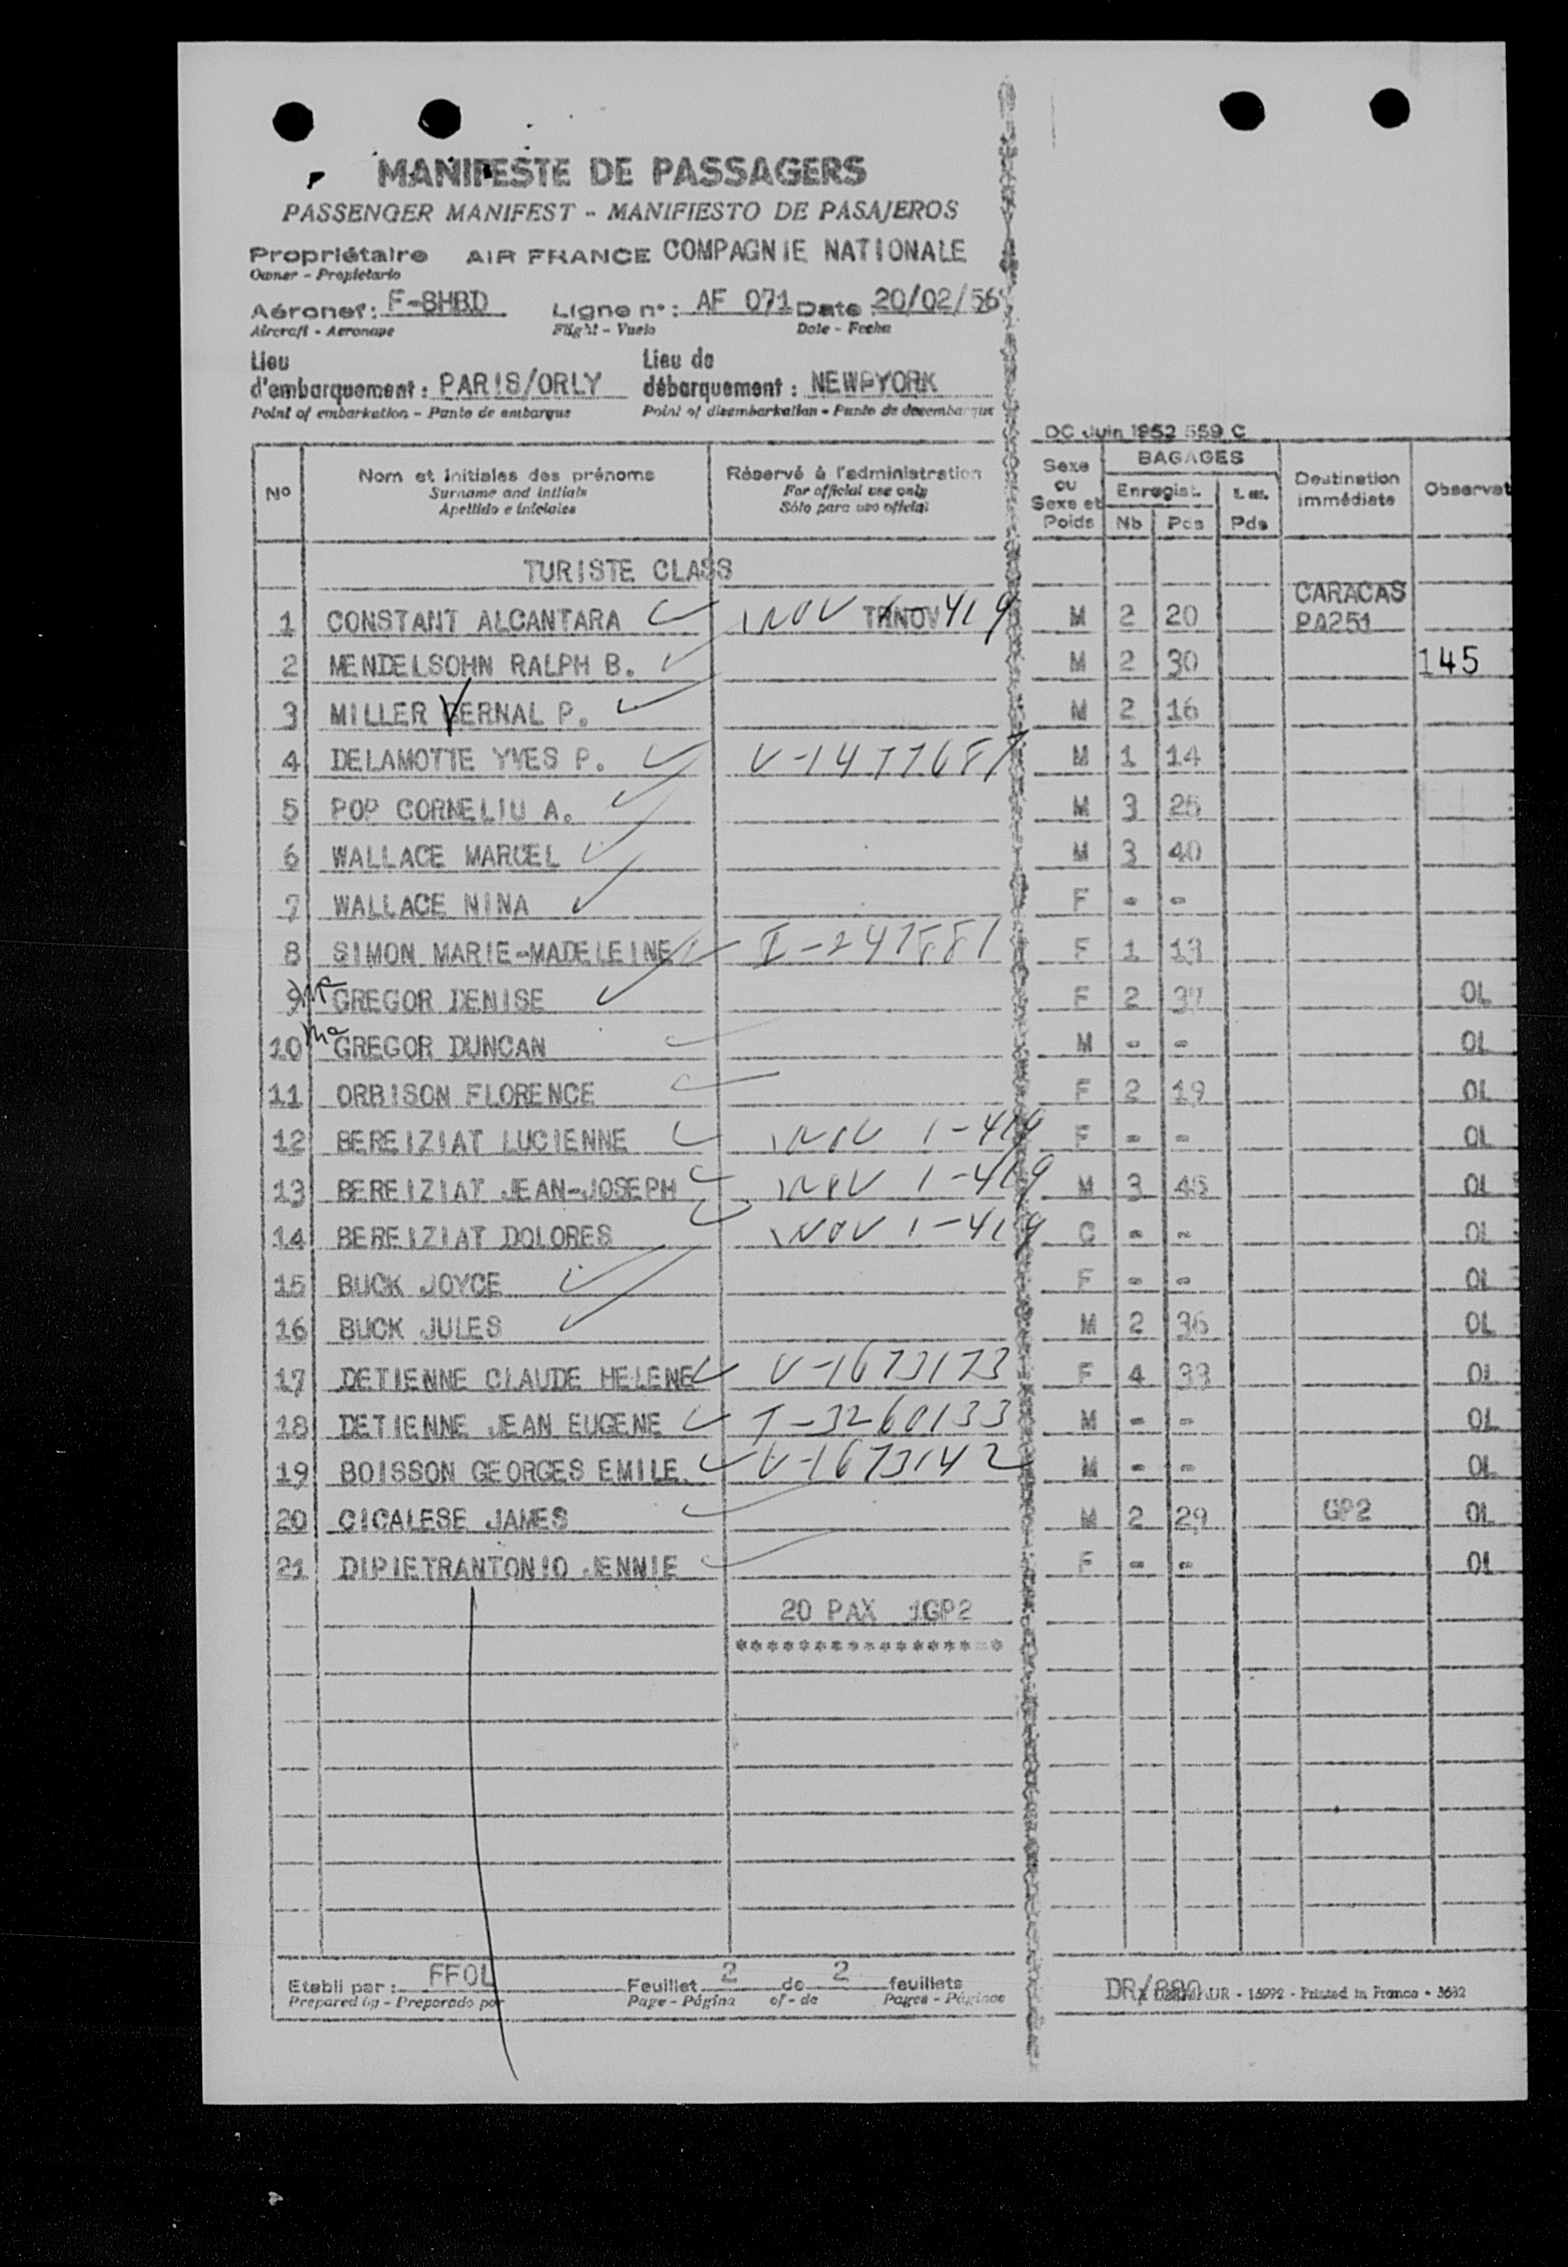 MANIFESTE DE PASSAGERS
PASSENGER MANIFEST - MANIFIESTO DE PASAJEROS
Propriétaire AIR FRANCE COMPAGNIE NATIONALE
Owner - Propietario
Aéronef : F-BHBD Ligne n° : AF 071 Date 20/02/56
Aircraft - Aeronave Flight - Vuelo Date - Fecha
Lieu d'embarquement : PARIS/ORLY Lieu de débarquement : NEW YORK
Point of embarkation - Punto de embarque Point of disembarkation - Punto de desembarque
DC Juin 1952 559 C
N° Nom et initiales des prénoms Réservé à l'administration Sexe ou Sexe et Poids BAGAGES Destination immédiate Observat
Surname and initials For official use only Enregist.
Apellido e iniciales Sólo para uso oficial Nb Pds Pds
TURISTE CLASS
1 CONSTANT ALCANTARA TRNOV 419 M 2 20 CARACAS PA251
2 MENDELSOHN RALPH B. M 2 30 145
3 MILLER BERNAL P. M 2 16
4 DELAMOTTE YVES P. M 1 14
5 POP CORNELIU A. M 3 25
6 WALLACE MARCEL M 3 40
7 WALLACE NINA F - -
8 SIMON MARIE-MADELEINE F 1
9 GREGOR DENISE F 2 OL
10 GREGOR DUNCAN M - - OL
11 ORBISON FLORENCE F 2 19 OL
12 BEREIZIAT LUCIENNE INOV 1-419 F - - OL
13 BEREIZIAT JEAN-JOSEPH INOV 1-419 M 3 45 OL
14 BEREIZIAT DOLORES INOV 1-419 C - - OL
15 BUCK JOYCE F - - OL
16 BUCK JULES M 2 36 OL
17 DETIENNE CLAUDE HELENE V-1673173 F 4 33 OL
18 DETIENNE JEAN EUGENE T-3260133 M - - OL
19 BOISSON GEORGES EMILE. V-1673142 M - - OL
20 CICALESE JAMES M 2 29 GP2 OL
21 DIPIETRANTONIO JENNIE F - - OL
20 PAX 1GP2
*****************
Etabli par : FFOL Feuillet 2 de 2 feuillets
Prepared by - Preparado por Page - Página of - de Pages - Páginas
16992 - Printed in France